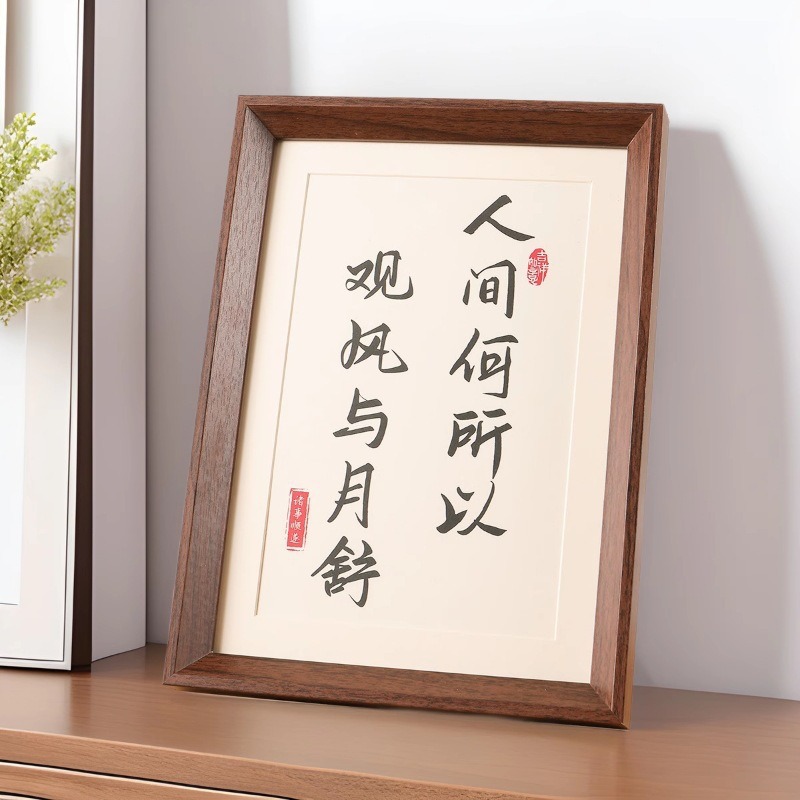 人间何所以
观风与月舒
吉祥如意
诸事顺遂